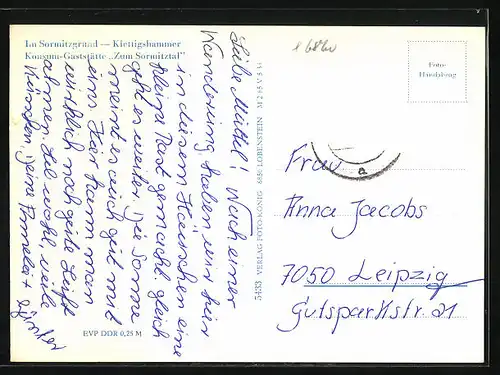 Im Sormitzgrund — Klettigshammer
Konsum-Gaststätte „Zum Sormitztal"
Liebe Mutti! Nach einer
Wanderung haben wir hier
in diesem Häuschen eine
kleine Rast gemacht, gleich
geht es weiter. Die Sonne
meint es auch gut mit
uns. Hier kann man
wirklich noch gute Luft
atmen. Leb wohl, viele
+ Günter
EVP DDR 0,25 M
VERLAG FOTO-KÖNIG 6850 LOBENSTEIN
Foto-
Frau
Anna Jacobs
7050 Leipzig
Gutsparkstr. 21